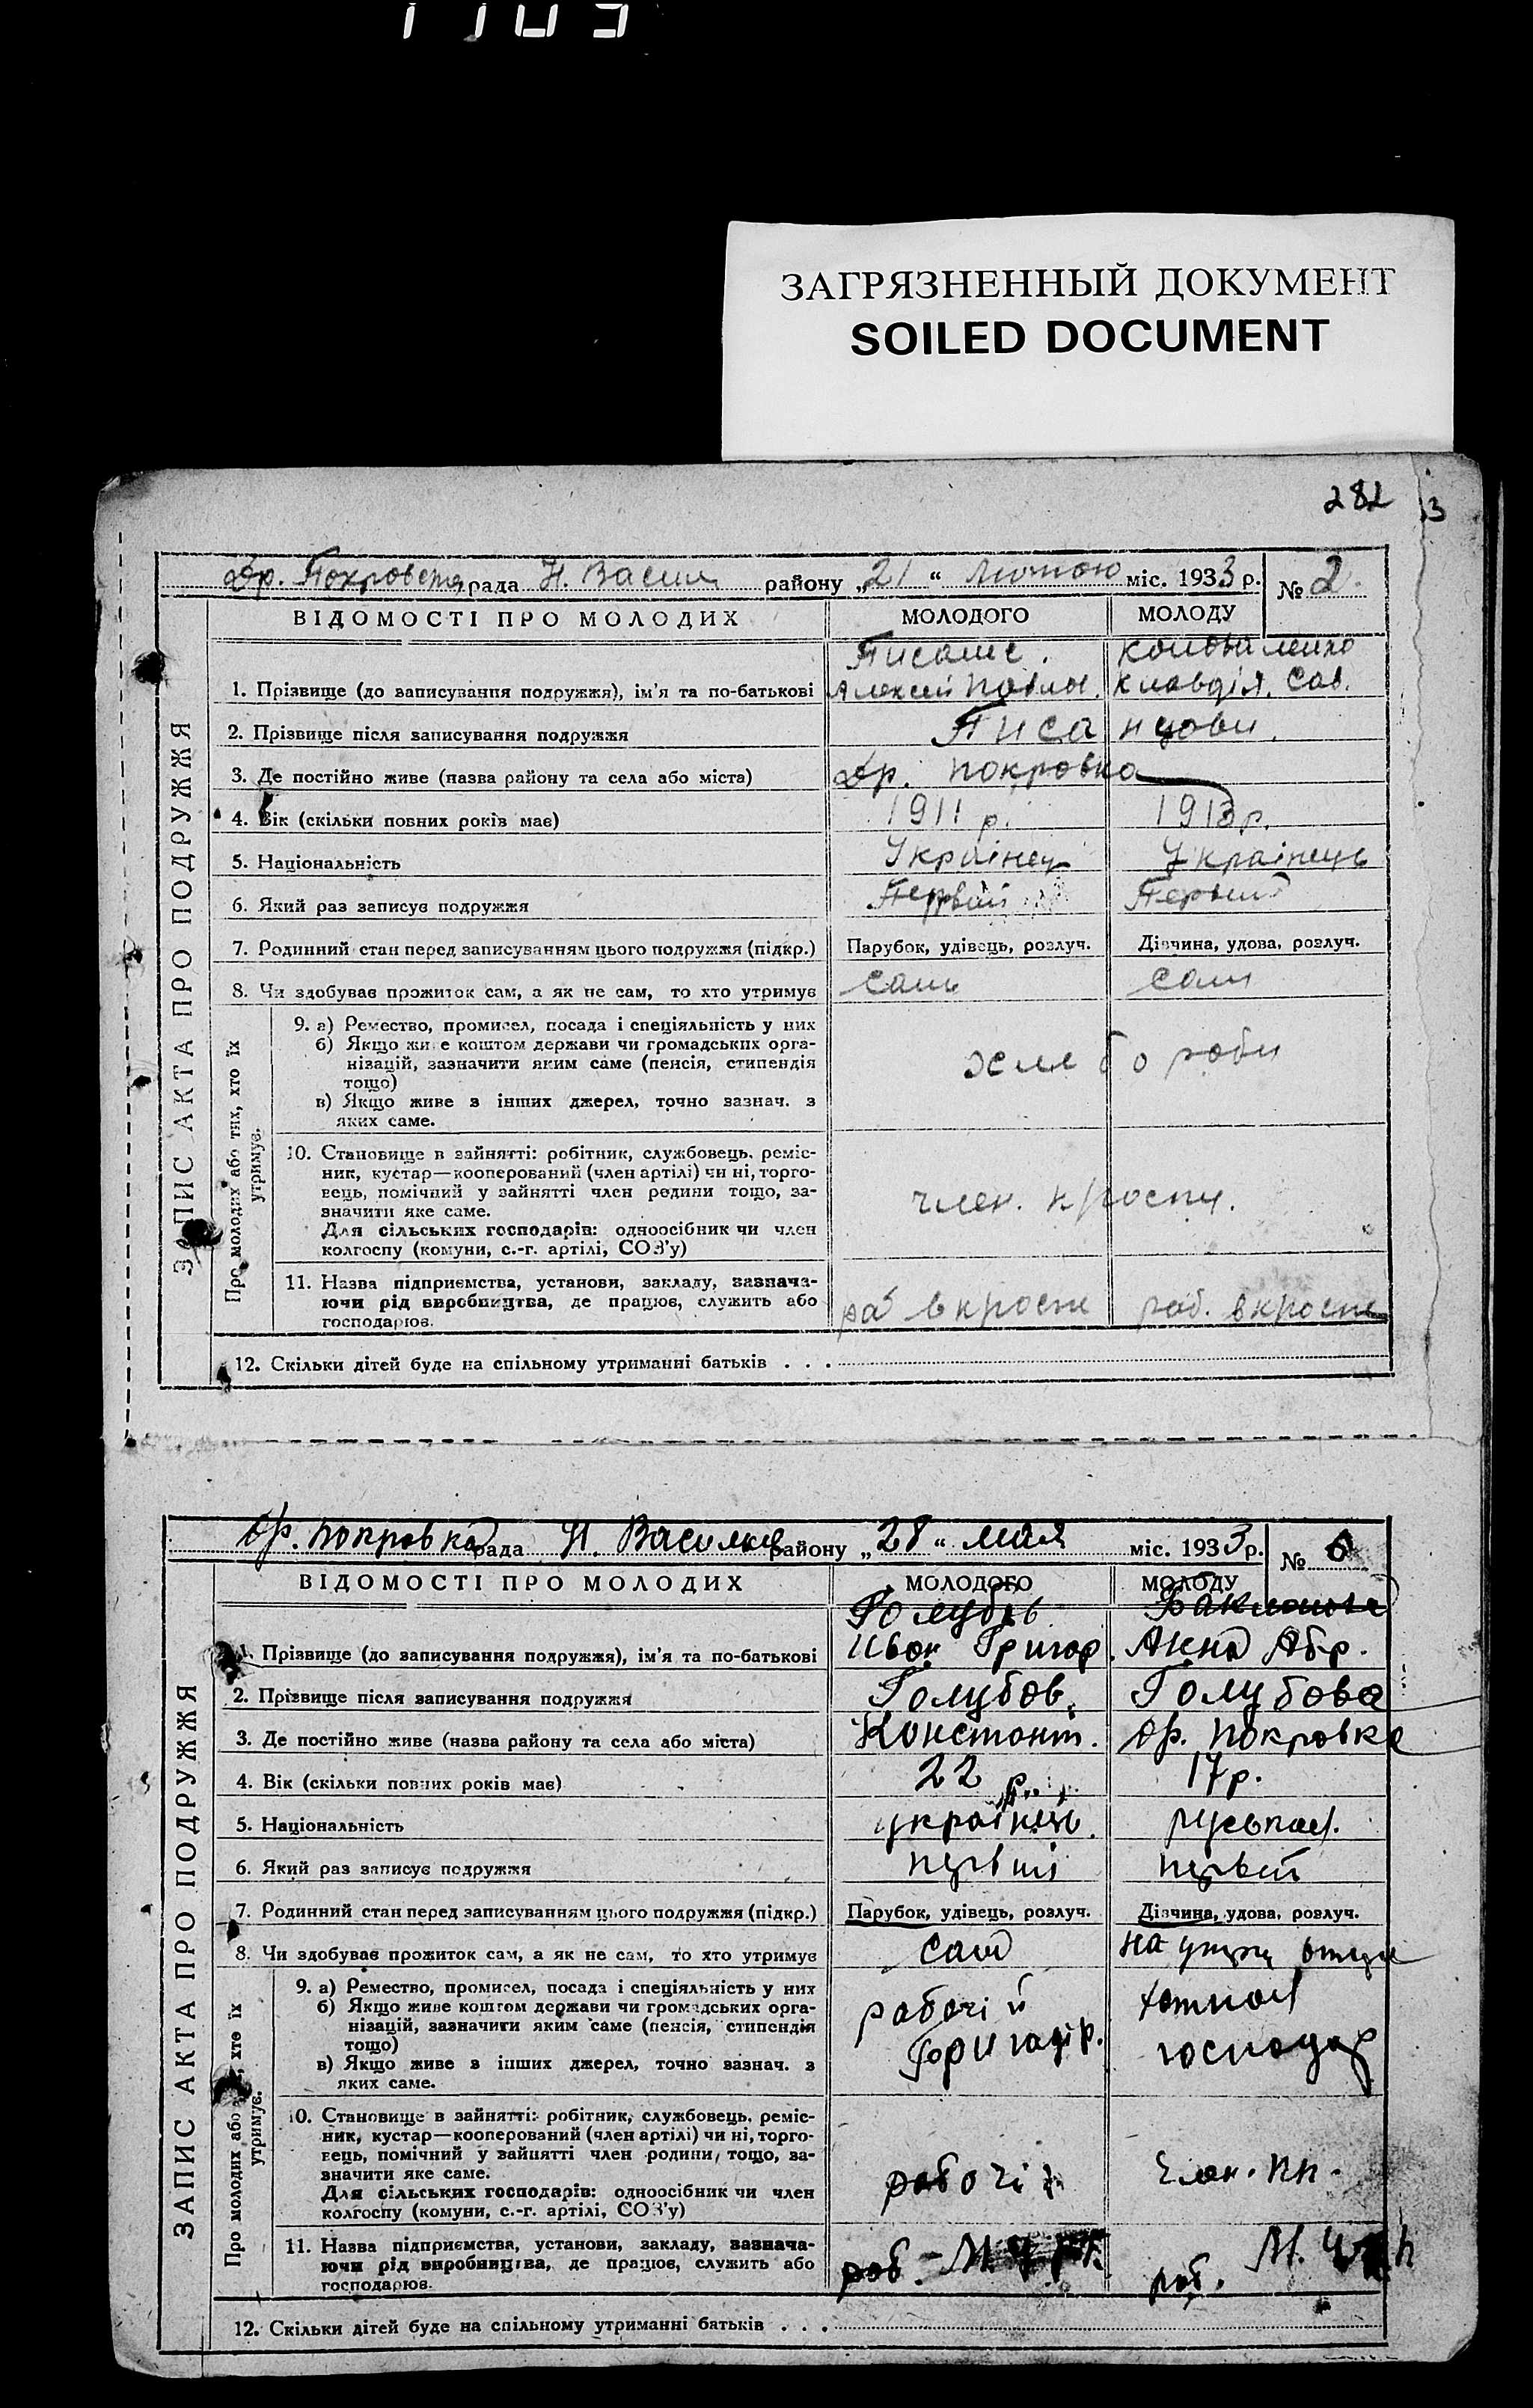 ЗАГРЯЗНЕННЫЙ ДОКУМЕНТ
SOILED DOCUMENT
282
3
Др. Покровська рада Н. Васил району „21“ міс. 1933 р. № 2.
ВІДОМОСТІ ПРО МОЛОДИХ МОЛОДОГО МОЛОДУ
ЗАПИС АКТА ПРО ПОДРУЖЖЯ
1. Прізвище (до записування подружжя), ім'я та по-батькові Алексей Павлов. Клавдія. Сав.
2. Прізвище після записування подружжя
3. Де постійно живе (назва району та села або міста) Др. Покровка
4. Вік (скільки повних років має) 1911 р. 1913 р.
5. Національність Українец Українець
6. Який раз записує подружжя Первий Первий
7. Родинний стан перед записуванням цього подружжя (підкр.) Парубок, удівець, розлуч. Дівчина, удова, розлуч.
8. Чи здобуває прожиток сам, а як не сам, то хто утримує сам сам
Про молодих або тих, хто їх утримує.
9. а) Ремество, промисел, посада і спеціяльність у них
б) Якщо живе коштом держави чи громадських орга-
нізацій, зазначити яким саме (пенсія, стипендія
тощо)
в) Якщо живе з інших джерел, точно зазнач. з
яких саме.
10. Становище в зайнятті: робітник, службовець, реміс-
ник, кустар—кооперований (член артілі) чи ні, торго-
вець, помічний у зайнятті член родини тощо, за-
значити яке саме.
Для сільських господарів: одноосібник чи член
колгоспу (комуни, с.-г. артілі, СОЗ'у)
член.
11. Назва підприємства, установи, закладу, зазнача-
ючи рід виробництва, де працює, служить або
господарює.
раб.
12. Скільки дітей буде на спільному утриманні батьків . . .
Др. Покровка рада Н. Васильев району „28“ мая міс. 1933 р. № 6
ВІДОМОСТІ ПРО МОЛОДИХ МОЛОДОГО МОЛОДУ
ЗАПИС АКТА ПРО ПОДРУЖЖЯ
Голубов
1. Прізвище (до записування подружжя), ім'я та по-батькові Иван Григор. Анна Абр.
2. Прізвище після записування подружжя Голубов. Голубова
3. Де постійно живе (назва району та села або міста) Констант. Др. Покровка
4. Вік (скільки повних років має) 22 р. 17 р.
5. Національність українець.
6. Який раз записує подружжя первий первий
7. Родинний стан перед записуванням цього подружжя (підкр.) Парубок, удівець, розлуч. Дівчина, удова, розлуч.
8. Чи здобуває прожиток сам, а як не сам, то хто утримує сам на
Про молодих або хто їх утримує.
9. а) Ремество, промисел, посада і спеціяльність у них
б) Якщо живе коштом держави чи громадських орга-
нізацій, зазначити яким саме (пенсія, стипендія
тощо)
в) Якщо живе з інших джерел, точно зазнач. з
яких саме.
рабочій
10. Становище в зайнятті: робітник, службовець, реміс-
ник, кустар—кооперований (член артілі) чи ні, торго-
вець, помічний у зайнятті член родини, тощо, за-
значити яке саме.
Для сільських господарів: одноосібник чи член
колгоспу (комуни, с.-г. артілі, СОЗ'у)
рабочій
11. Назва підприємства, установи, закладу, зазнача-
ючи рід виробництва, де працює, служить або
господарює.
роб. роб.
12. Скільки дітей буде на спільному утриманні батьків . . .